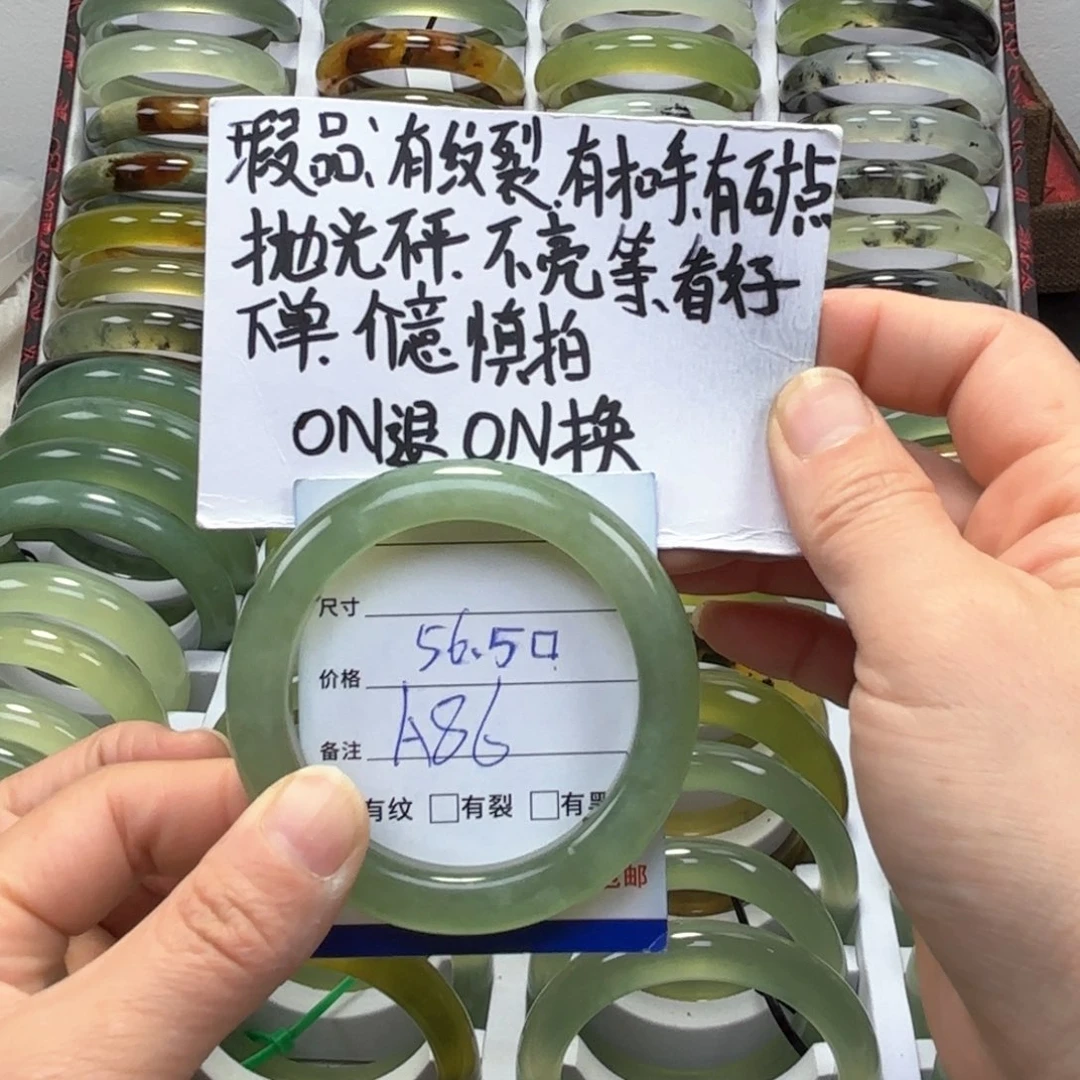 瑕品、有纹裂.有扣手.有矿点
抛光砰.不亮等.看好
下单.介意慎拍
ON退 ON换
尺寸
56.5口
价格
A86
备注
有纹 有裂 有黑
邮